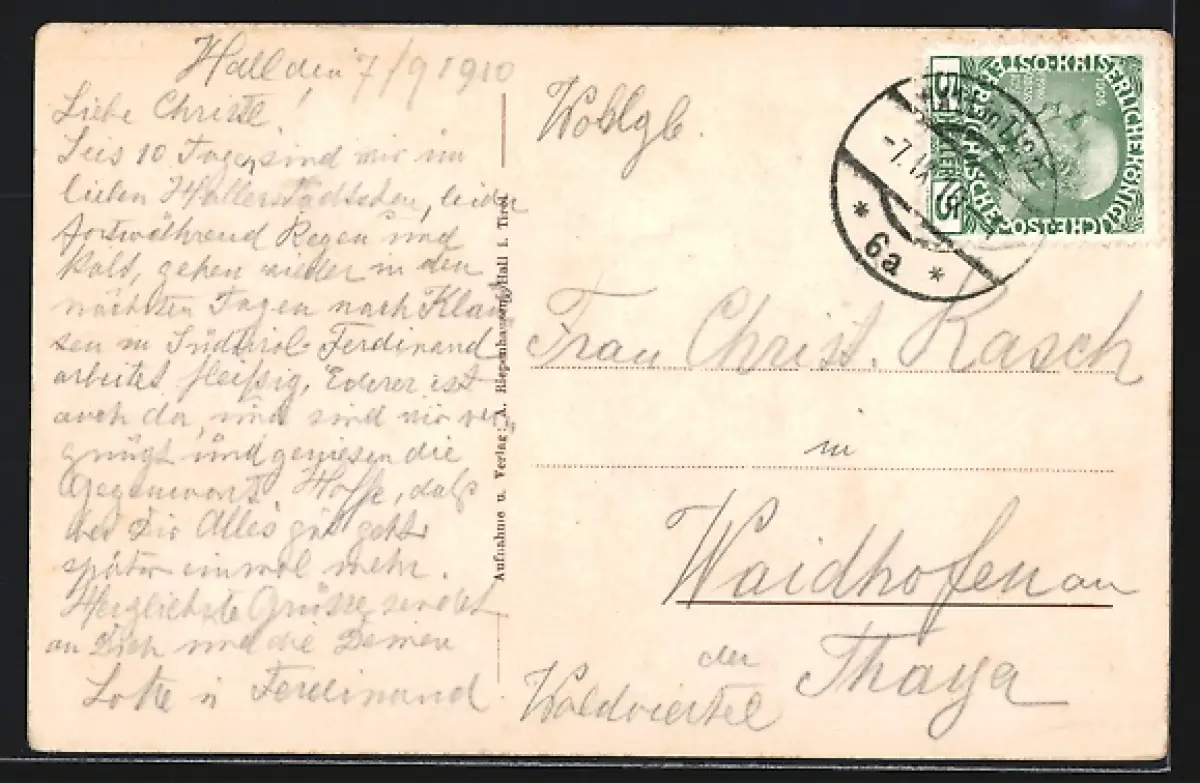 Hall den 7/9 1910
Liebe Christl!
Seis 10 Tagen sind wir im
lieben Hallerstädtchen, leider
fortwährend Regen und
kalt, gehen wieder in den
nächsten Tagen nach Klau-
sen in Südtirol. Ferdinand
arbeitet fleißig, Ederer ist
auch da, und sind wir ver-
gnügt und geniesen die
Gegenwart. Hoffe, daß
bei Dir Alles gut geht
später einmal mehr.
Herzlichste Grüsse sendet
an Dich und die Deinen
Lotte u Ferdinand
Aufnahme u. Verlag: A. Riepenhausen, Hall i. Tirol
Wohlgb.
Frau Christ. Rasch
in
Waidhofen an
der Thaya
Waldviertel
5 HELLER 5
1908
-7.IX
* 6a *